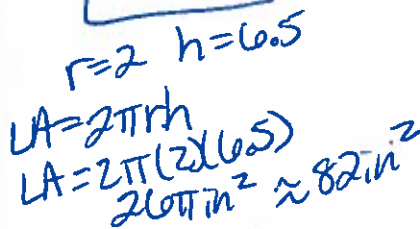 r=2 h=6.5
LA=2πrh
LA=2π(2)(6.5)
26π in² ≈ 82in²